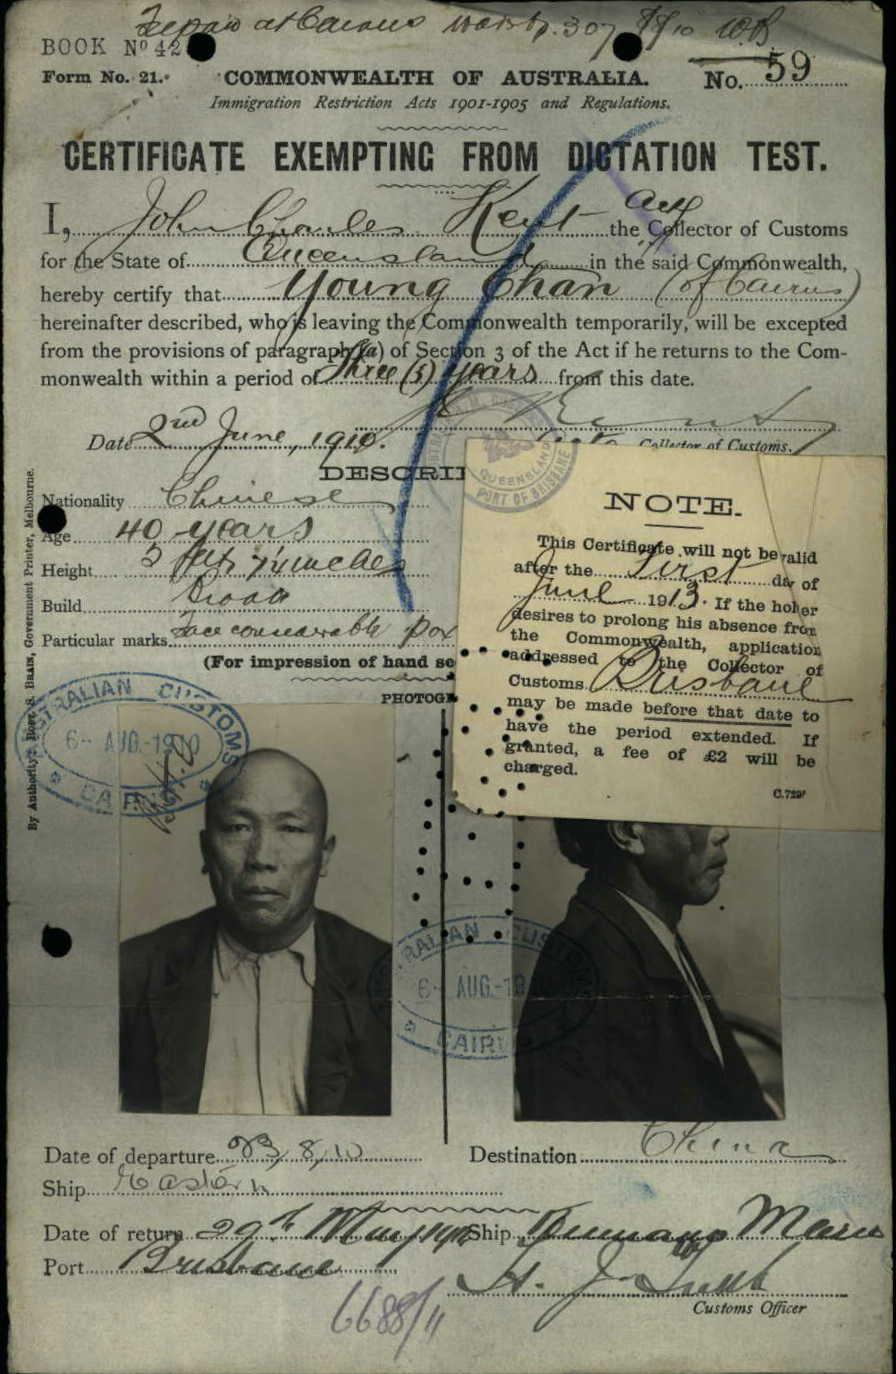 BOOK Nº 42
Form No. 21.
COMMONWEALTH OF AUSTRALIA.
No. 59
Immigration Restriction Acts 1901-1905 and Regulations.
CERTIFICATE EXEMPTING FROM DICTATION TEST.
I, John Charles Kent Actg the Collector of Customs
for the State of Queensland in the said Commonwealth,
hereby certify that Young Chan (of Cairns)
hereinafter described, who is leaving the Commonwealth temporarily, will be excepted
from the provisions of paragraph (a) of Section 3 of the Act if he returns to the Com-
monwealth within a period of Three (3) years from this date.
Date 2nd June, 1910.
Collector of Customs.
DESCRI
Nationality Chinese
Age 40 years
Height 5
Build Broad
Particular marks Face considerably pox
(For impression of hand se
PHOTOG
NOTE.
This Certificate will not be valid
after the First day of
June 1913. If the holder
desires to prolong his absence from
the Commonwealth, application
addressed to the Collector of
Customs Brisbane
may be made before that date to
have the period extended. If
granted, a fee of £2 will be
charged.
C.729
QUEENSLAND
PORT OF BRISBANE
By Authority: Robt. S. Brain, Government Printer, Melbourne.
AUSTRALIAN CUSTOMS
6- AUG. 1910
CAIRNS
RALIAN CUS
6- AUG.-19
CAIRN
Date of departure 23/8/10
Destination China
Ship Eastern
Date of return 29th May 1912 Ship Kumano Maru
Port Brisbane
H. J.
Customs Officer
6688/11